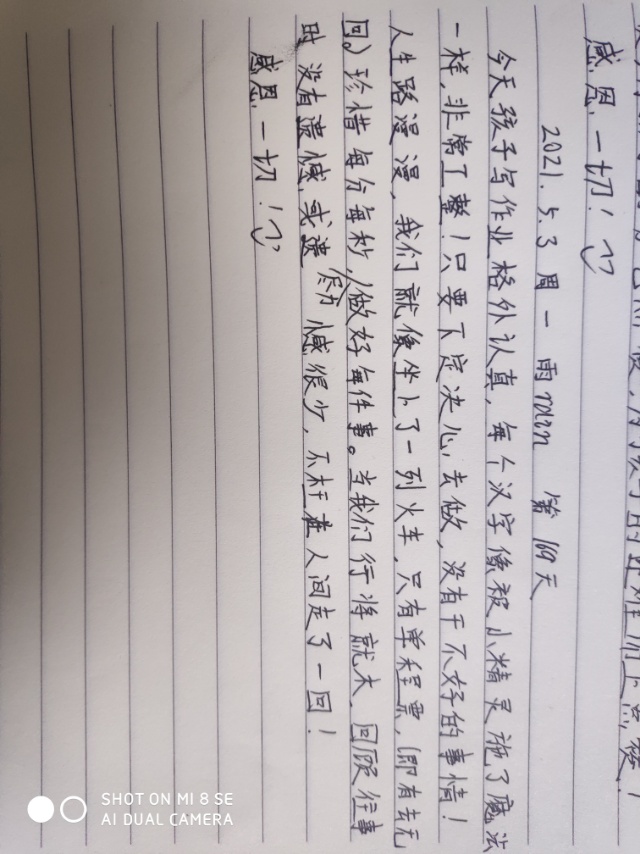 感恩一切！
2021.5.3 周一 雨 rain 第169天
今天孩子写作业格外认真，每个汉字像被小精灵施了魔法
一样，非常工整！只要下定决心去做，没有干不好的事情！
人生路漫漫，我们就像坐上了一列火车，只有单程票，(即有去无
回。) 珍惜每分每秒，尽力做好每件事。当我们行将就木，回顾往事
时，没有遗憾或遗憾很少，不枉在人间走了一回！
感恩一切！
SHOT ON MI 8 SE
AI DUAL CAMERA